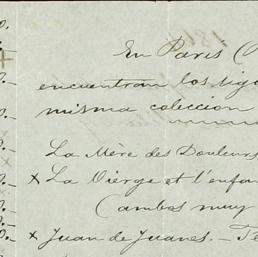 En Paris (
encuentran los sig
misma coleccion
La Mère des Douleurs
x La Vierge et l'enfan
(ambos muy
x Juan de Juanes. - Te